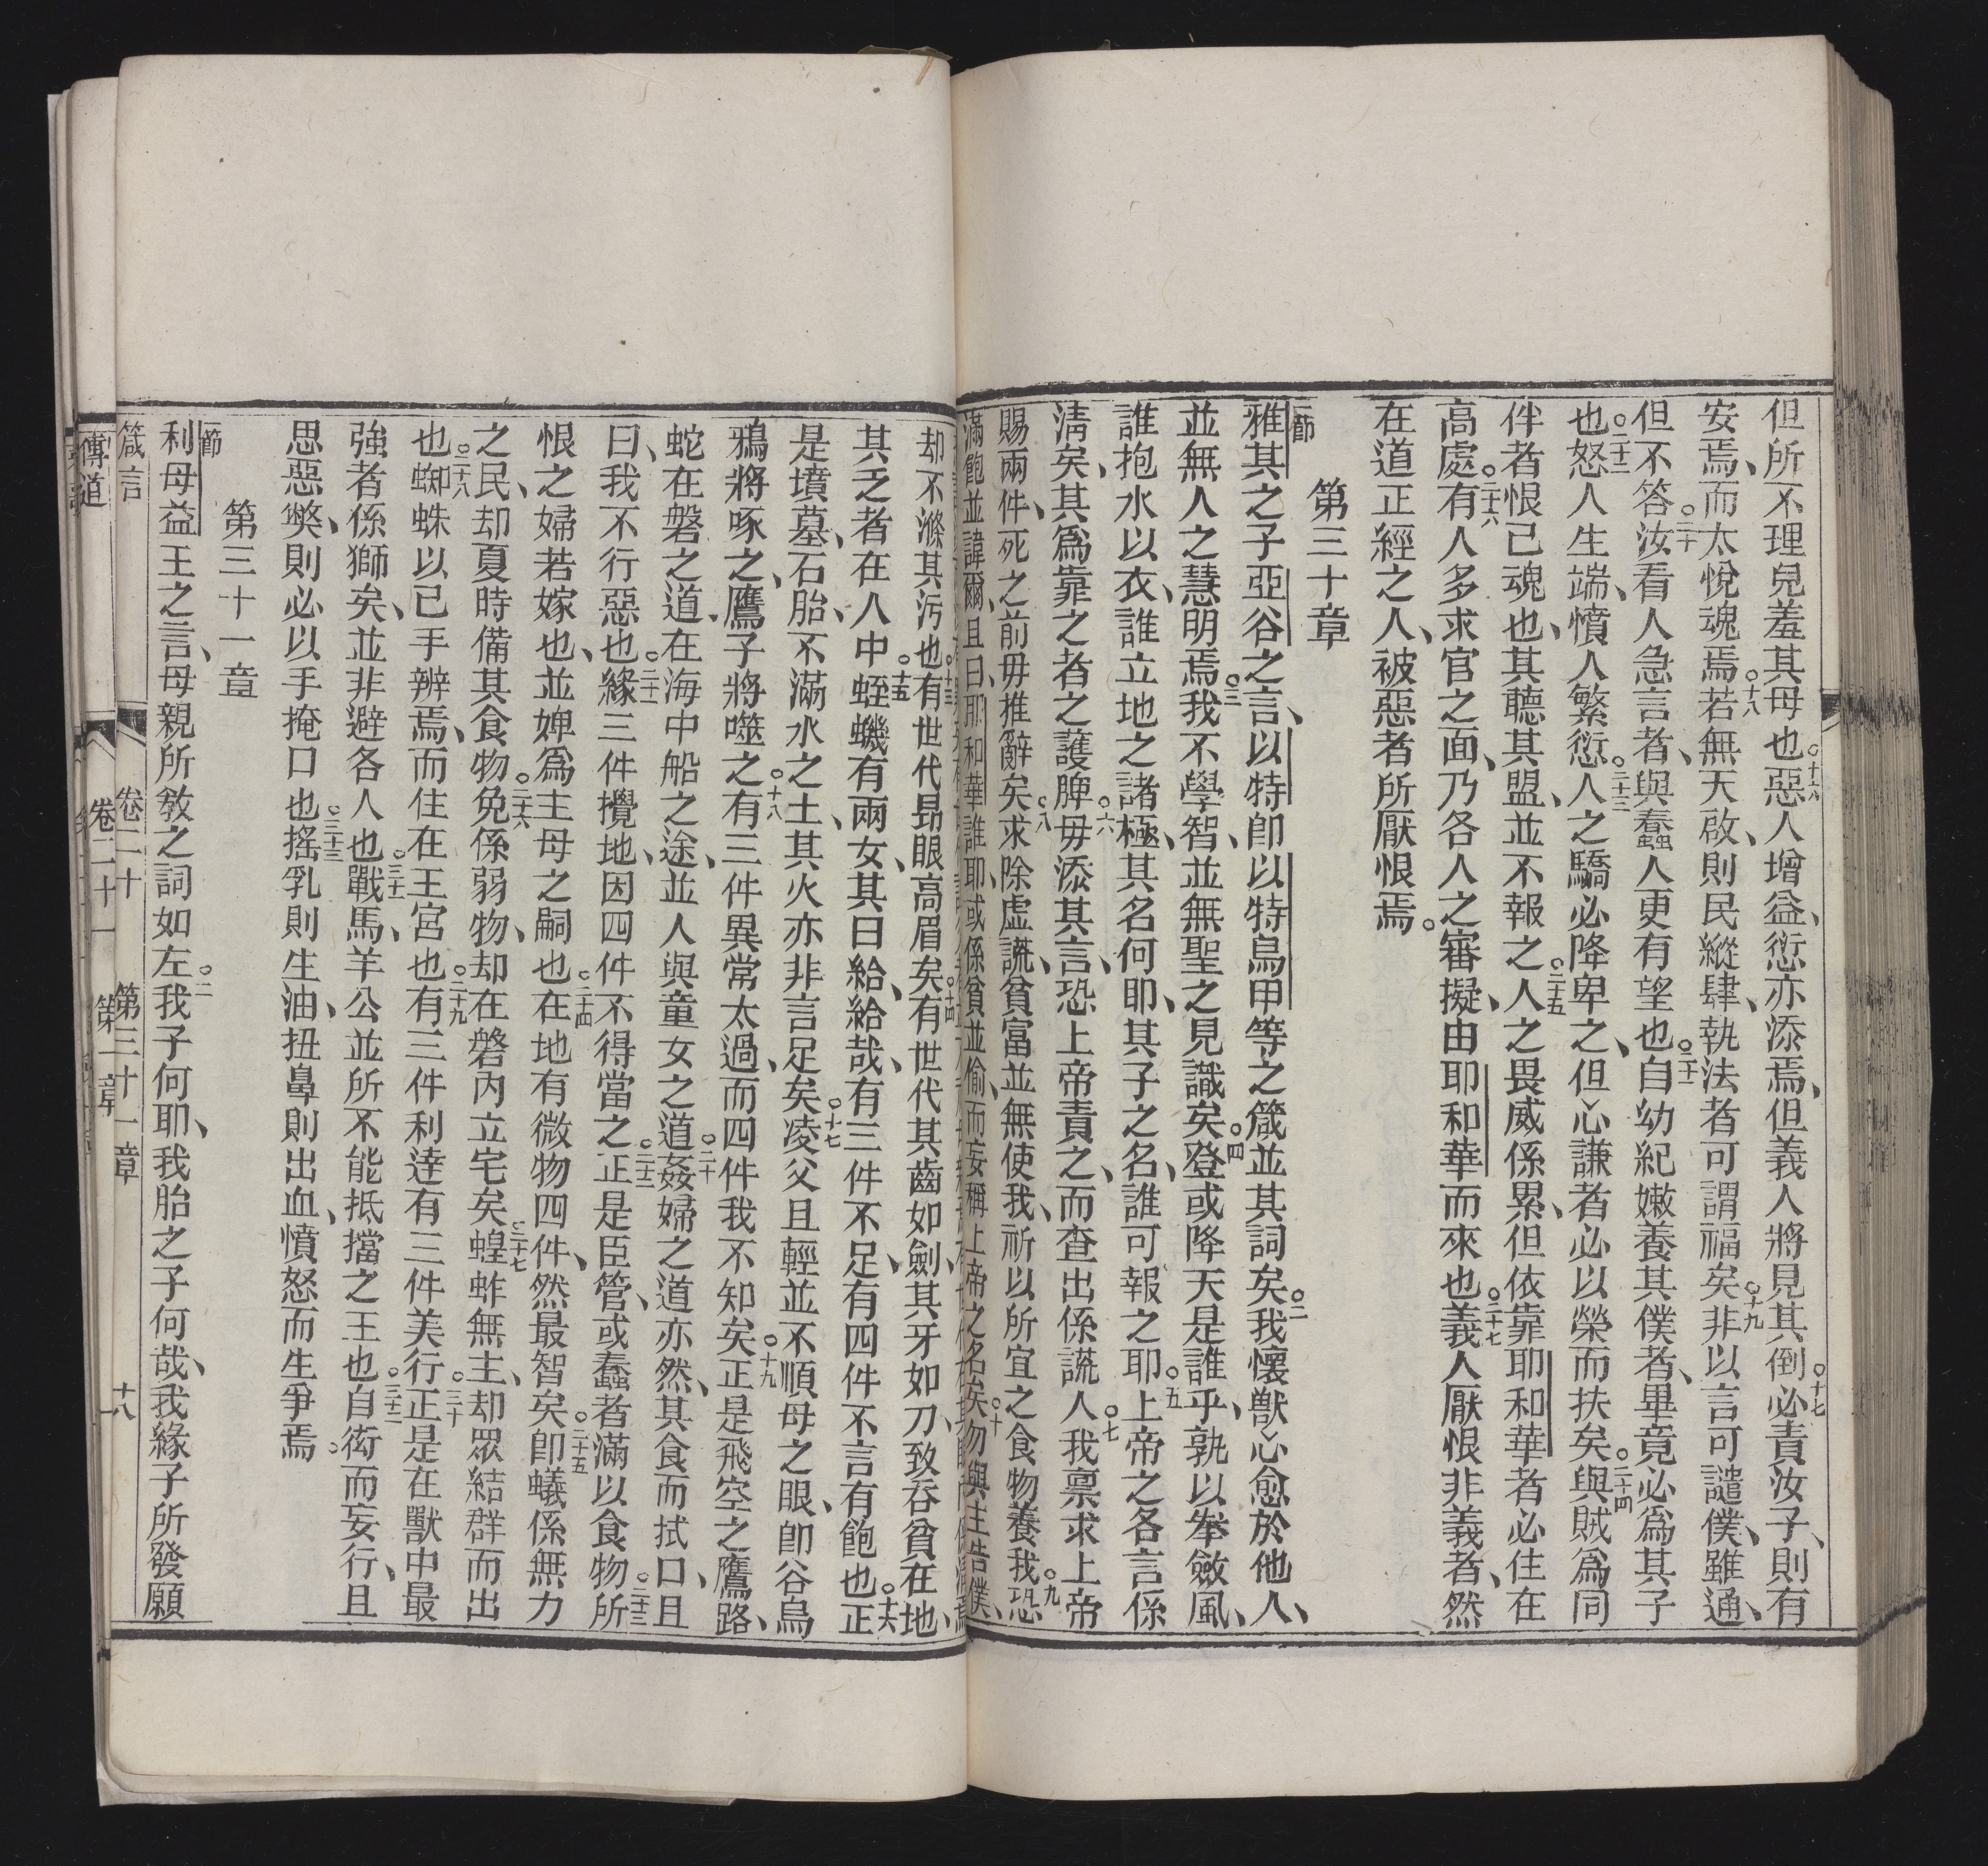 但所不理兒羞其母也○十六惡人增益、愆亦添焉、但義人將見其倒○十七必責汝子、則有
安焉、而太悅魂焉○十八若無天啟、則民縱肆、執法者可謂福矣○十九非以言可譴僕、雖通、
但不答○二十汝看人急言者、與蠢人更有望也○二十一自幼紀嫩養其僕者、畢竟必為其子
也○二十二怒人生端、憤人繁愆○二十三人之驕必降卑之、但心謙者必以榮而扶矣○二十四與賊為同
伴者恨己魂也、其聽其盟、並不報之○二十五人之畏威係累、但依靠耶和華者必住在
高處○二十六有人多求官之面、乃各人之審擬、由耶和華而來也○二十七義人厭恨非義者、然
在道正經之人、被惡者所厭恨焉。
第三十章
一節
雅其之子亞谷之言、以特卽以特烏甲等之箴並其詞矣○二我懷獸心愈於他人、
並無人之慧明焉○三我不學智、並無聖之見識矣○四登或降天是誰乎、孰以拳斂風、
誰抱水以衣、誰立地之諸極、其名何耶、其子之名、誰可報之耶○五上帝之各言係
淸矣、其為靠之者之護脾○六毋添其言、恐上帝責之、而查出係謊人○七我禀求上帝
賜兩件、死之前毋推辭矣○八求除虛謊、貧富並無使我、祈以所宜之食物養我○九恐
滿飽並諱爾、且曰、耶和華誰耶、或係貧並偷、而妄稱上帝之名矣○十勿與主告僕、
却不滌其污也○十三有世代昻眼高眉矣○十四有世代其齒如劍、其牙如刀、致吞貧在地、
其乏者在人中○十五蛭蟣有兩女、其曰給、給哉、有三件不足、有四件不言有飽也○十六正
是墳墓、石胎、不滿水之土、其火亦非言足矣○十七凌父且輕並不順母之眼、卽谷烏
鴉將啄之、鷹子將噬之○十八有三件異常太過、而四件我不知矣○十九正是飛空之鷹路、
蛇在磐之道、在海中船之途、並人與童女之道○二十姦婦之道亦然、其食而拭口、且
曰、我不行惡也○二十一緣三件攪地、因四件不得當之○二十二正是臣管、或蠢者滿以食物○二十三所
恨之婦若嫁也、並婢為主母之嗣也○二十四在地有微物四件、然最智矣○二十五卽蟻係無力
之民、却夏時備其食物○二十六免係弱物、却在磐內立宅矣○二十七蝗蚱無主、却眾結群而出
也○二十八蜘蛛以己手辦焉、而住在王宮也○二十九有三件利達有三件美行○三十正是在獸中最
強者係獅矣、並非避各人也○三十一戰馬、羊公並所不能抵擋之王也○三十二自衒而妄行、且
思惡獘、則必以手掩口也○三十三搖乳則生油、扭鼻則出血、憤怒而生爭焉○
第三十一章
一節
利母益王之言、母親所敎之詞如左○二我子何耶、我胎之子何哉、我緣子所發願
箴言 卷二十 第三十一章 十八
傳道 卷二十一 第一章 一